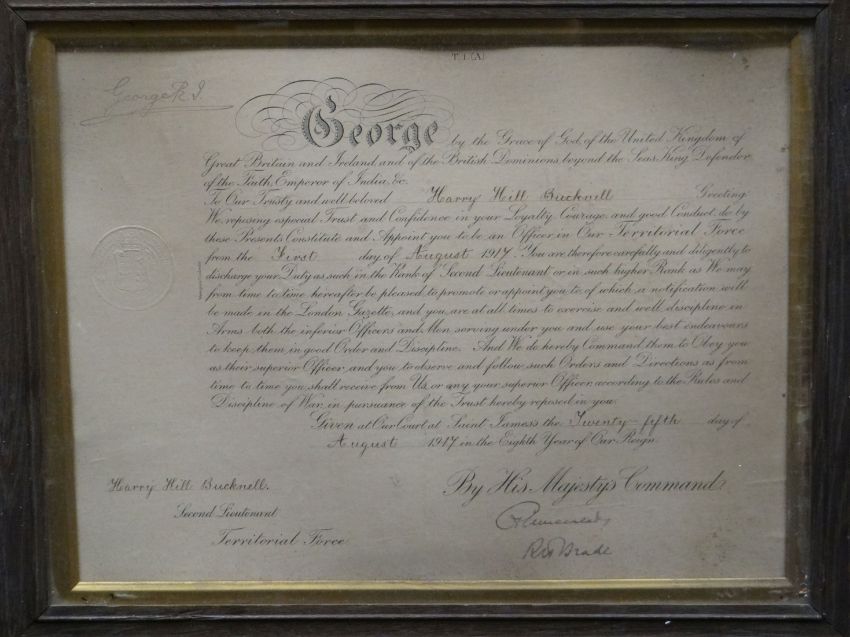 T.F.(A)
George R.I.
George by the Grace of God, of the United Kingdom of
Great Britain and Ireland, and of the British Dominions beyond the Seas, King, Defender
of the Faith, Emperor of India, &c.
To Our Trusty and well beloved Harry Hill Bucknell Greeting
We reposing especial Trust and Confidence in your Loyalty, Courage, and good Conduct, do by
these Presents Constitute and Appoint you to be an Officer in Our Territorial Force
from the First day of August 1917. You are therefore carefully and diligently to
discharge your Duty as such in the Rank of Second Lieutenant or in such higher Rank as We may
from time to time hereafter be pleased to promote or appoint you to, of which a notification will
be made in the London Gazette, and you are at all times to exercise and well discipline in
Arms both the inferior Officers and Men serving under you and use your best endeavours
to keep them in good Order and Discipline. And We do hereby Command them to Obey you
as their superior Officer, and you to observe and follow such Orders and Directions as from
time to time you shall receive from Us, or any your superior Officer, according to the Rules and
Discipline of War, in pursuance of the Trust hereby reposed in you.
Given at Our Court at Saint James's the Twenty-fifth day of
August 1917 in the Eighth Year of Our Reign
Harry Hill Bucknell.
Second Lieutenant
Territorial Force
By His Majesty's Command
R H Brade